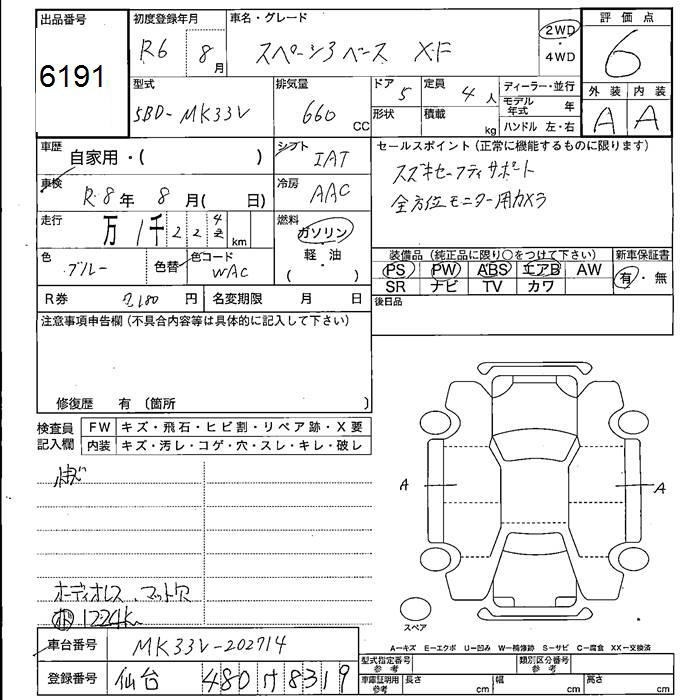 出品番号
6191
初度登録年月
R6 8月
車名・グレード
スペーシアベース XF
2WD
・
4WD
評価点
6
外装 内装
A A
型式
5BD-MK33V
排気量
660 CC
ドア 5
形状
定員 4人
積載 kg
ディーラー・並行
モデル年式 年
ハンドル 左・右
車歴
自家用・( )
シフト IAT
セールスポイント (正常に機能するものに限ります)
スズキセーフティサポート
全方位モニター用カメラ
車検 R.8年 8月( 日)
冷房 AAC
走行 万 1千 2 2 4 km
燃料
ガソリン
軽・油
( )
色 ブルー 色替
色コード WAC
装備品 (純正品に限り○をつけて下さい)
PS PW ABS エアB AW
SR ナビ TV カワ
新車保証書
有・無
R券 2,180 円 名変期限 月 日
後日品
注意事項申告欄 (不具合内容等は具体的に記入して下さい)
修復歴 有 〔箇所 〕
検査員記入欄
FW キズ・飛石・ヒビ割・リペア跡・X要
内装 キズ・汚レ・コゲ・穴・スレ・キレ・破レ
オーディオレス、マット穴
1224km
A A
スペア
A=キズ E=エクボ U=凹み W=補修跡 S=サビ C=腐食 XX=交換済
車台番号 MK33V-202714
登録番号 仙台 480 け 8319
型式指定番号 参考
類別区分番号 参考
車庫証明用 参考 長さ cm 幅 cm 高さ cm